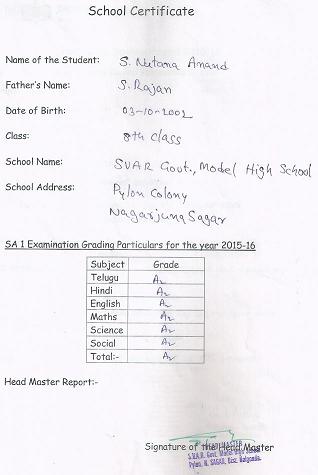 School Certificate
Name of the Student: S. Nutana Anand
Father's Name: S. Rajan
Date of Birth: 03-10-2002
Class: 8th class
School Name: SVAR Govt., Model High School
School Address: Pylon Colony
Nagarjuna Sagar
SA 1 Examination Grading Particulars for the year 2015-16
Subject Grade
Telugu A2
Hindi A2
English A2
Maths A2
Science A2
Social A2
Total:- A2
Head Master Report:-
Signature of the Head Master
HEADMASTER
S.V.A.R. Govt. Model High School
Pylon, N. SAGAR, Dist. Nalgonda.